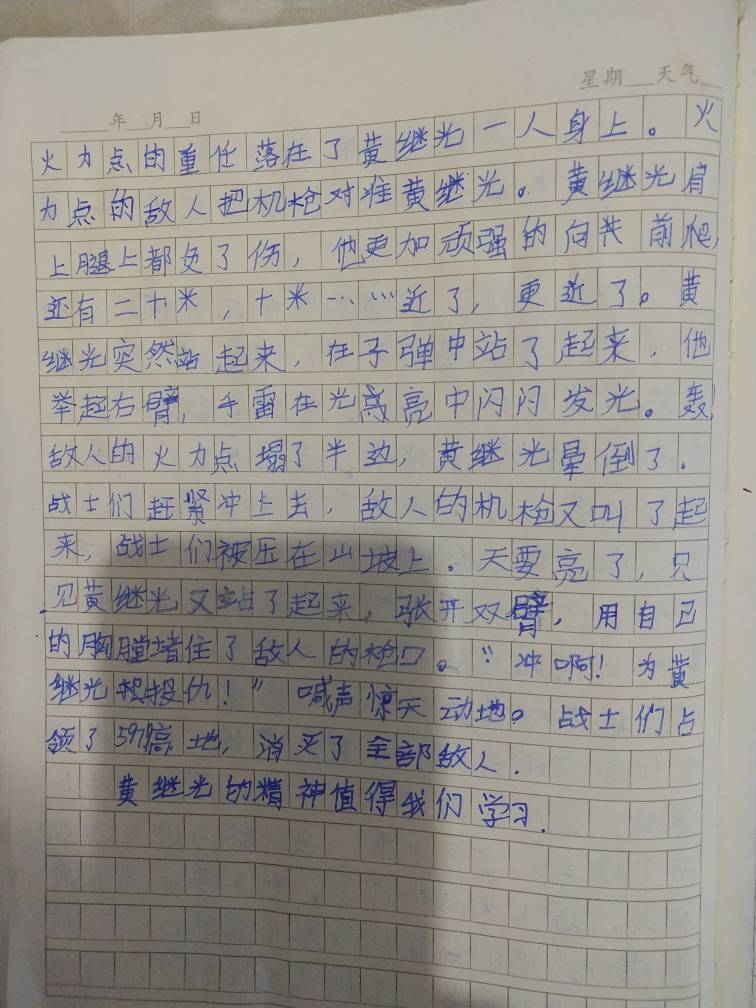 星期 天气
年 月 日
火力点的重任落在了黄继光一人身上。火
力点的敌人把机枪对准黄继光。黄继光肩
上腿上都负了伤，他更加顽强的向前爬，
还有二十米，十米……近了，更近了。黄
继光突然站起来，在子弹中站了起来，他
举起右臂，手雷在光亮中闪闪发光。轰！
敌人的火力点塌了半边，黄继光晕倒了.
战士们赶紧冲上去，敌人的机枪又叫了起
来，战士们被压在山坡上。天要亮了，只
见黄继光又站了起来，张开双臂，用自己
的胸膛堵住了敌人的枪口。“冲啊！为黄
继光报仇！”喊声惊天动地。战士们占
领了597.9高地，消灭了全部敌人.
黄继光的精神值得我们学习.